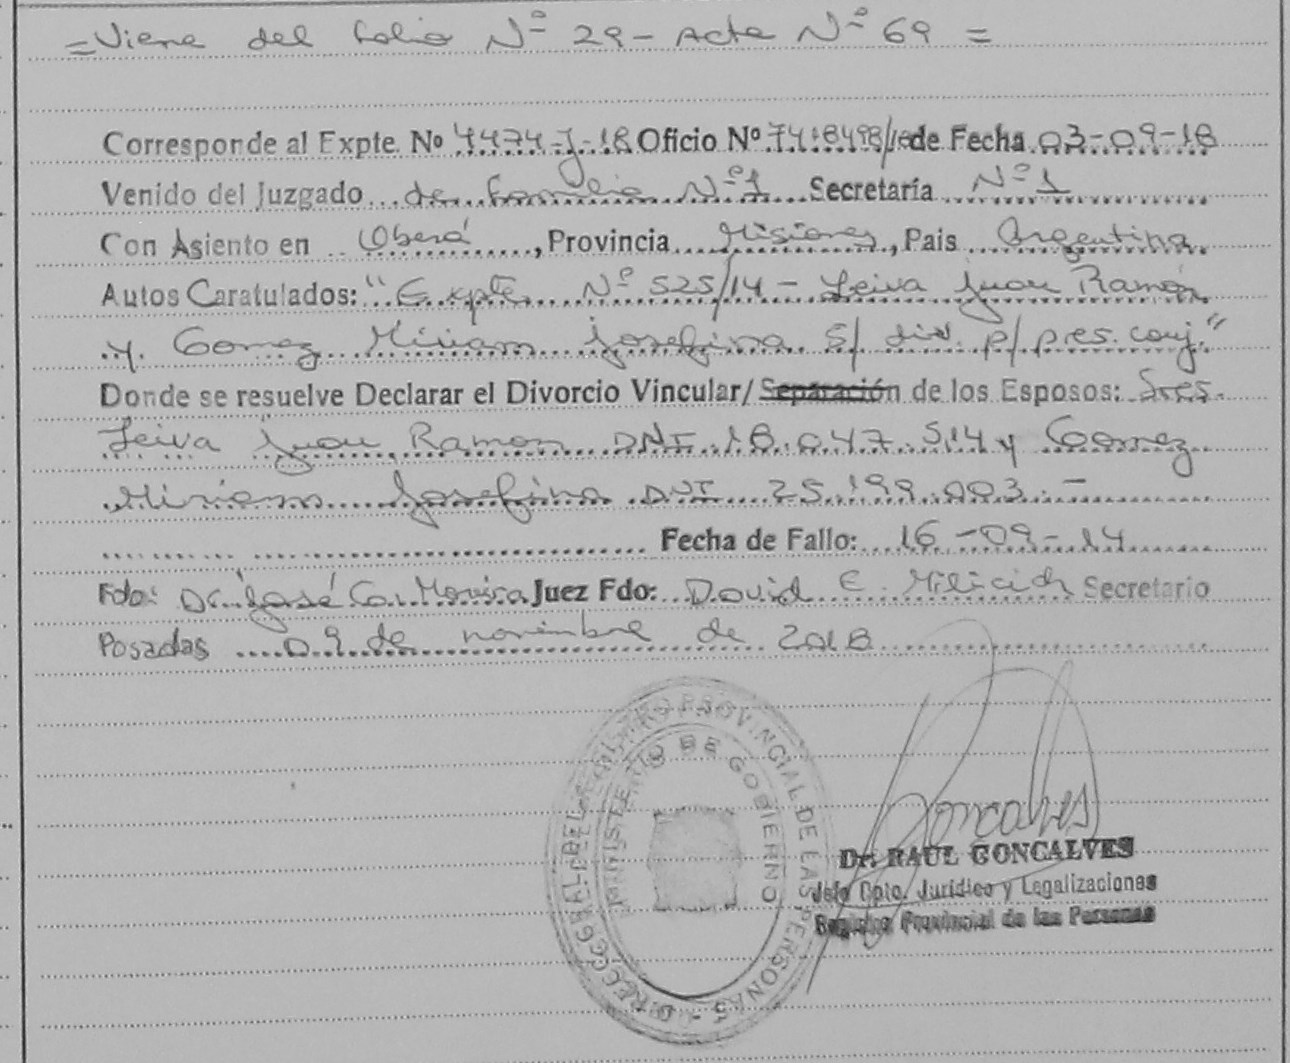 = Viene del folio Nº 29 - Acta Nº 69 =
Corresponde al Expte. Nº 7474-J-18 Oficio Nº 7418498/18 de Fecha 03-09-18
Venido del Juzgado de familia Nº 1 Secretaría Nº 1
Con Asiento en Oberá, Provincia Misiones, Pais Argentina
Autos Caratulados: "Expte. Nº 525/14 - Leiva Juan Ramón
y Gomez Miriam Josefina S/ div. p/ pres. conj."
Donde se resuelve Declarar el Divorcio Vincular/ Separación de los Esposos: Sres.
Leiva Juan Ramon DNI 18.047.514 y Gomez
Miriam Josefina DNI 25.199.003.-
Fecha de Fallo: 16-09-14
Fdo: Dr. José G. Juez Fdo: David E. Milicich Secretario
Posadas 09 de noviembre de 2018
REGISTRO PROVINCIAL DE LAS PERSONAS
MINISTERIO DE GOBIERNO
Goncalves
Dr. RAUL GONCALVES
Jefe Dpto. Jurídico y Legalizaciones
Registro Provincial de las Personas